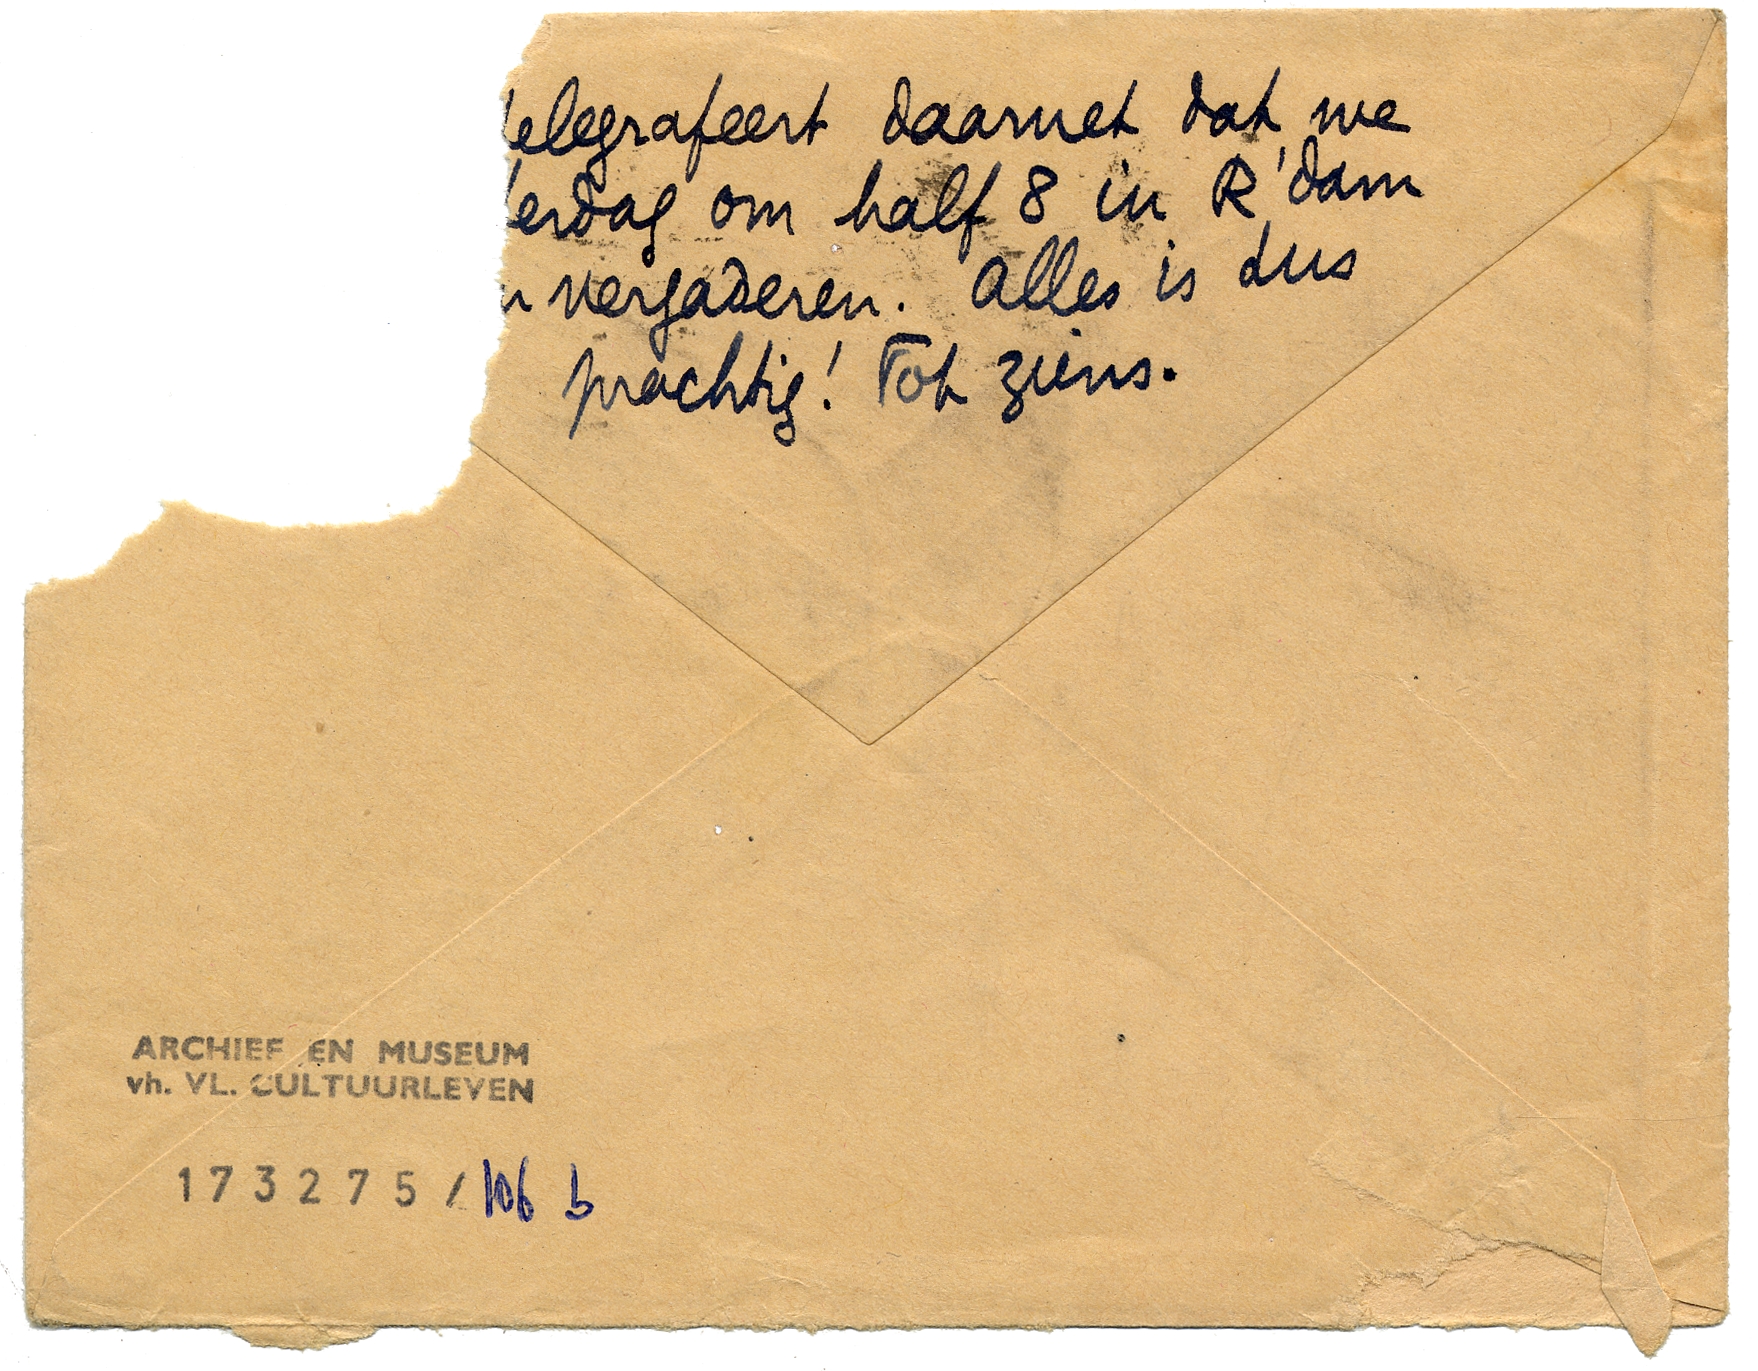 telegrafeert daarnet dat we
erdag om half 8 in R'dam
n vergaderen. Alles is dus
prachtig! Tot ziens.
ARCHIEF EN MUSEUM
vh. VL. CULTUURLEVEN
173275/106 b